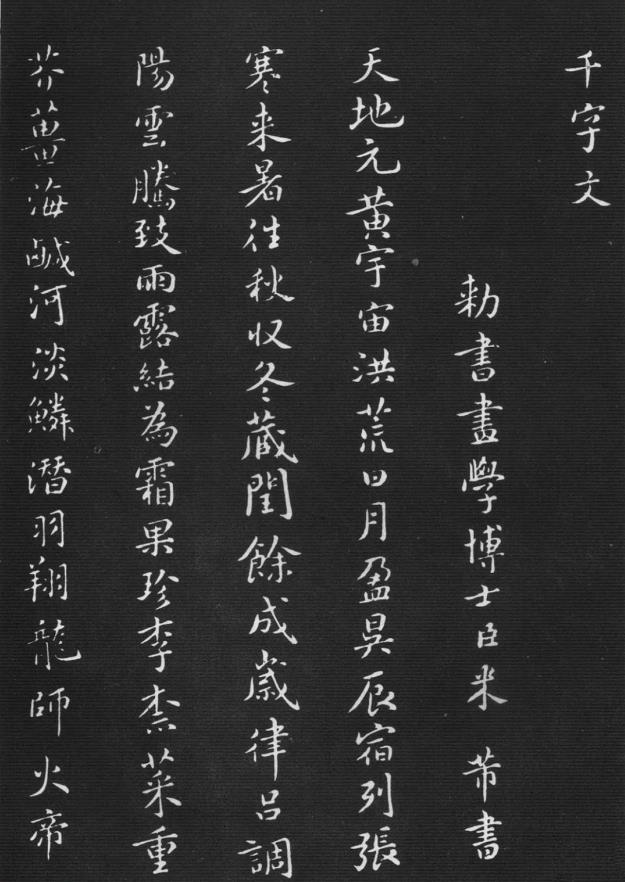 千字文
勅書畫學博士臣米芾書
天地元黄宇宙洪荒日月盈昃辰宿列張
寒来暑往秋収冬藏閏餘成歲律吕調
陽雲騰致雨露結為霜果珍李柰菜重
芥薑海鹹河淡鱗潜羽翔龍師火帝